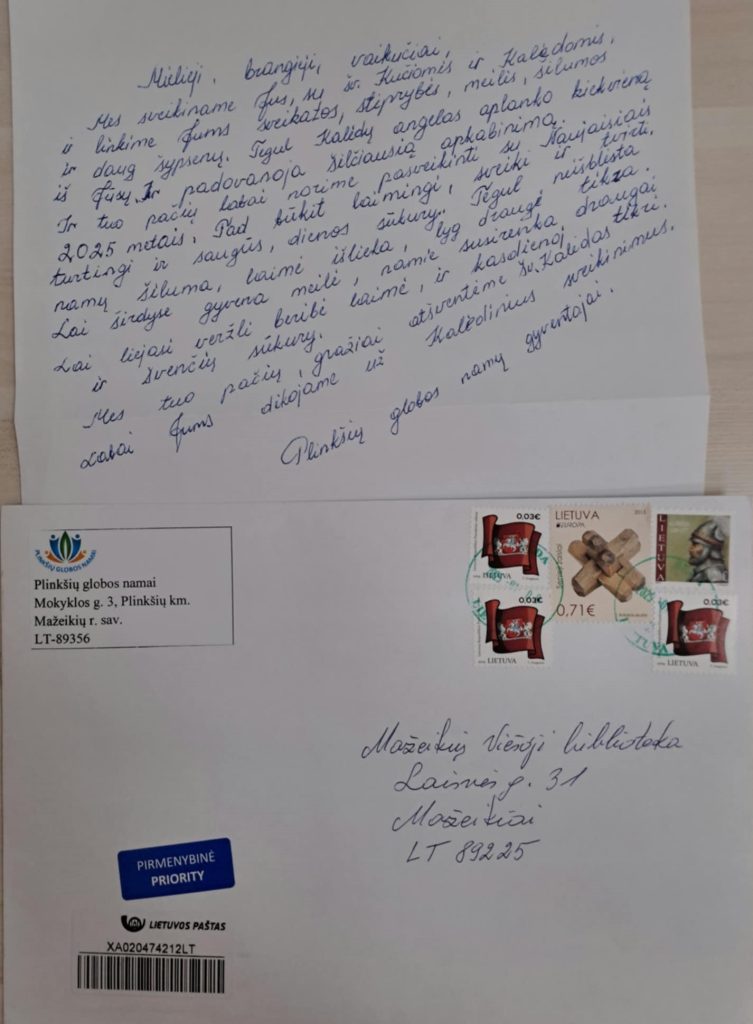 Mielieji, brangieji, vaikučiai,
Mes sveikiname Jus, su šv. Kučiomis ir Kalėdomis,
ir linkime Jums sveikatos, stiprybės, meilės, šilumos
ir daug šypsenų. Tegul Kalėdų angelas aplanko kiekvieną
iš Jūsų. Ir padovanoja šilčiausią apkabinimą.
Ir tuo pačiu labai norime pasveikinti su Naujaisiais
2025 metais. Pad būkit laimingi, sveiki ir tvirti,
turtingi ir saugūs, dienos sūkury. Tegul neišblėsta
namų šiluma, laimė išlieka, lyg draugė tikra.
Lai širdyse gyvena meilė, namie susirenka draugai
Lai liejasi veržli beribė laimė, ir kasdienoj
ir švenčių sūkury.
Mes tuo pačiu, gražiai atšventėme šv. Kalėdas tikri.
Labai Jums dėkojame už Kalėdinius sveikinimus.
Plinkšių globos namų gyventojai.
PLINKŠIŲ GLOBOS NAMAI
Plinkšių globos namai
Mokyklos g. 3, Plinkšių km.
Mažeikių r. sav.
LT-89356
0.03€
LIETUVA
LIETUVA
EUROPA
2015
0,71€
LIETUVA
0.03€
LIETUVA
0.03€
LIETUVA
Mažeikių Viešoji biblioteka
Laisvės g. 31
Mažeikiai
LT 89225
PIRMENYBINĖ
PRIORITY
LIETUVOS PAŠTAS
XA020474212LT